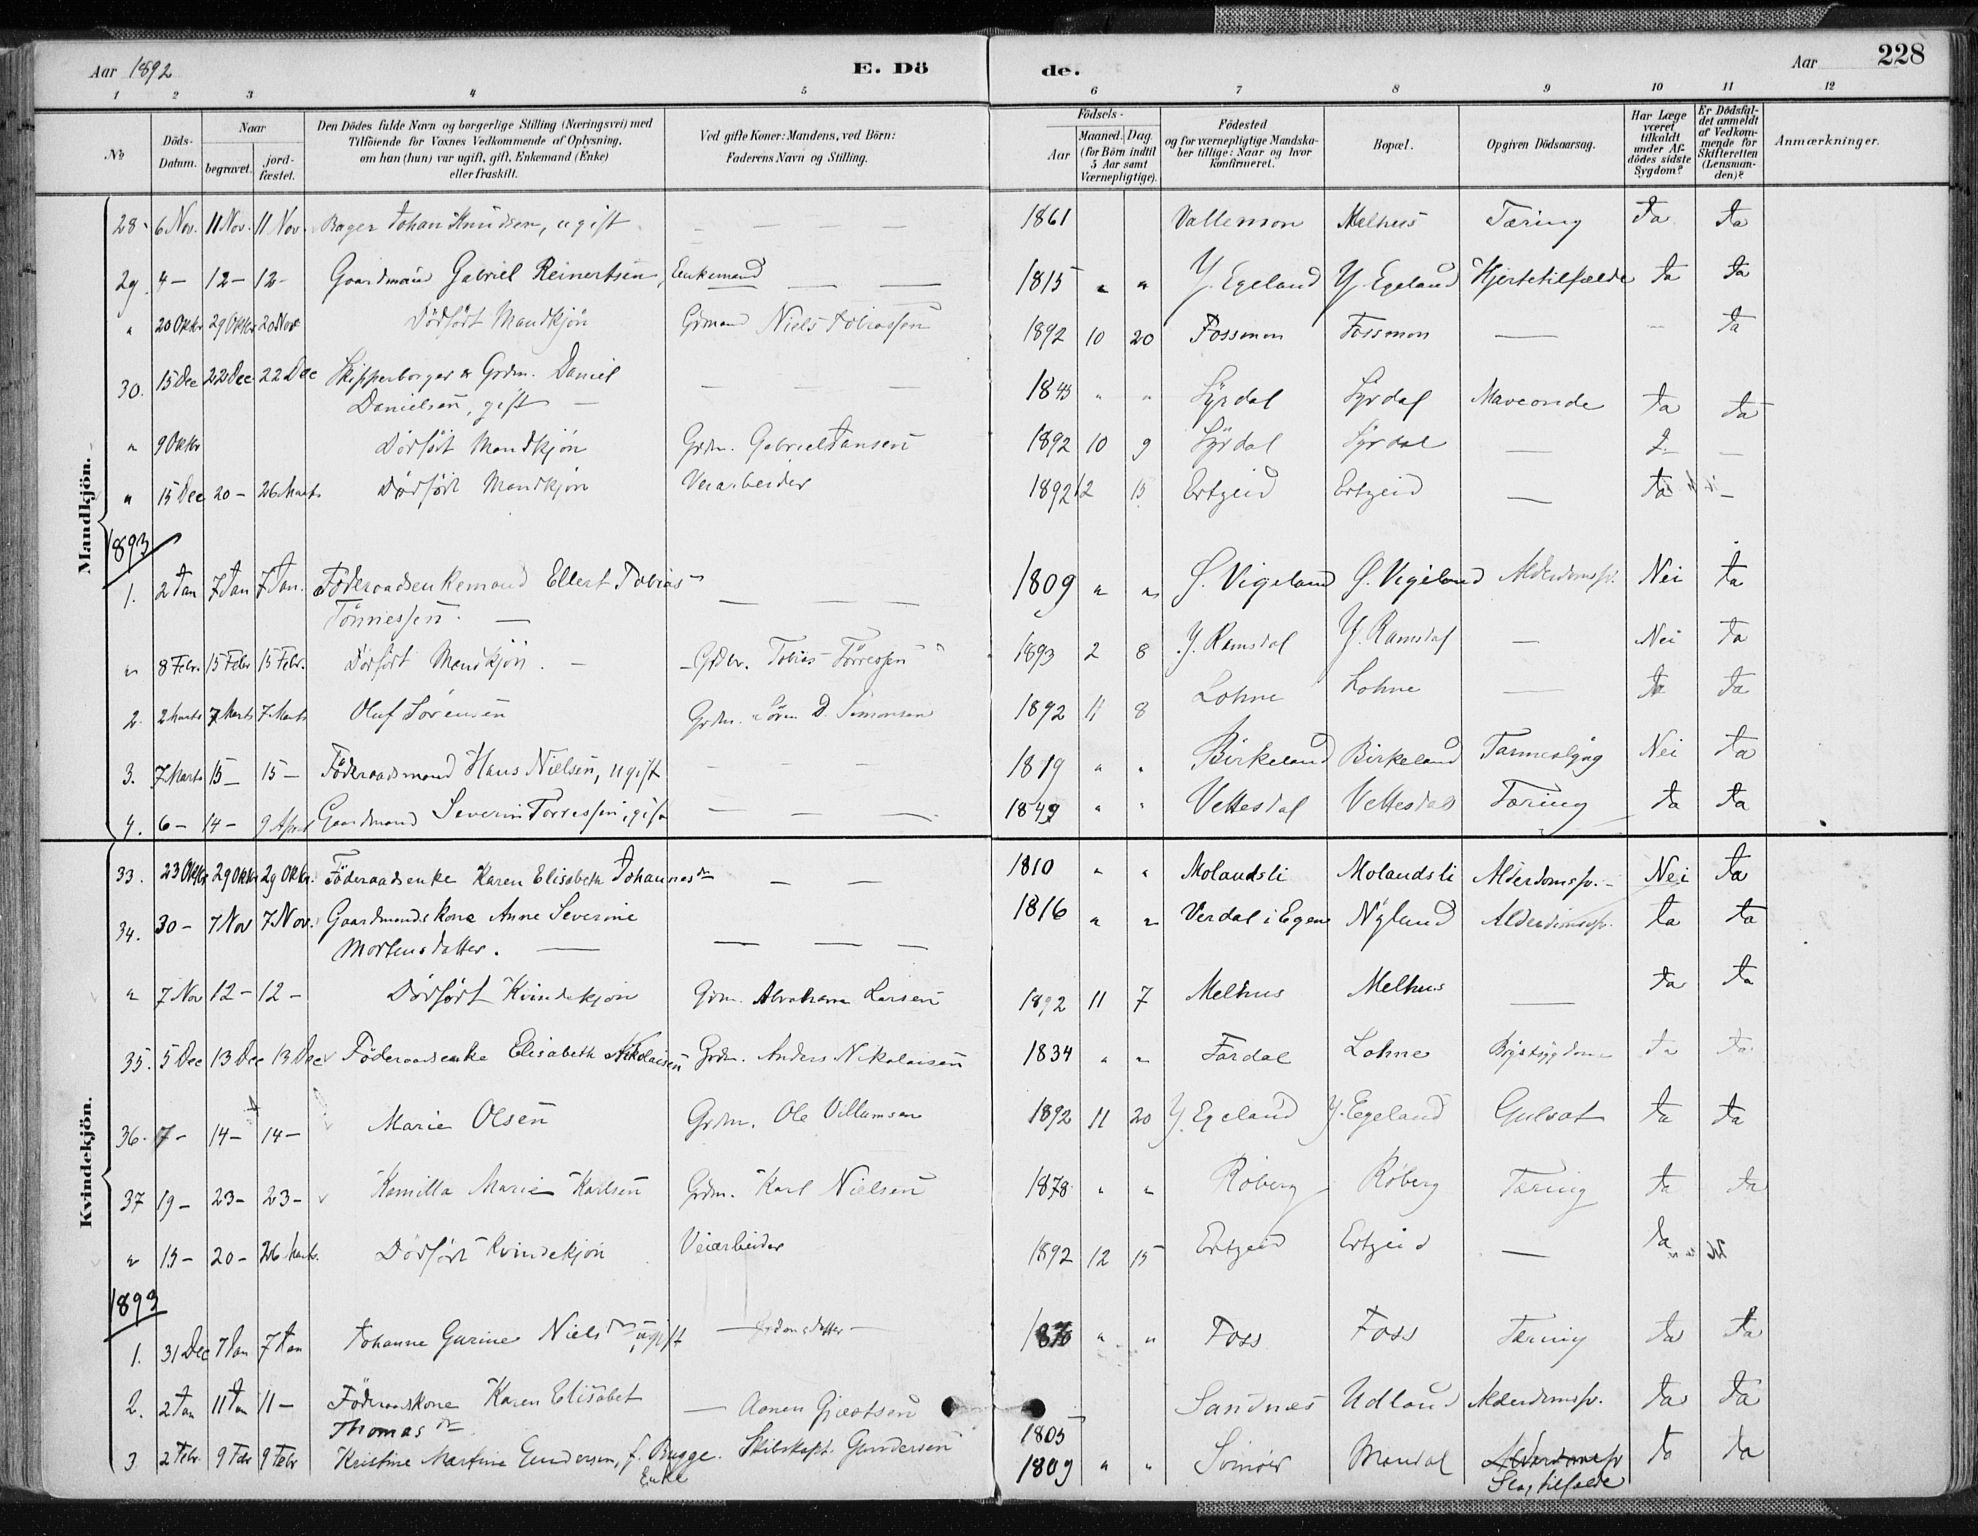 Aar 1892 E. Dö de. Aar 228
1 2 3 4 5 6 7 8 9 10 11 12
No Döds-Datum. Naar begravet. jordfæstet. Den Dödes fulde Navn og borgerlige Stilling (Næringsvei) med Tilföiende for Voxnes Vedkommende af Oplysning, om han (hun) var ugift, gift, Enkemand (Enke) eller fraskilt. Ved gifte Koner: Mandens, ved Börn: Faderens Navn og Stilling. Födsels- Aar Maaned. Dag. (for Börn indtil 5 Aar samt Værnepligtige). Födested og for værnepligtige Mandskaber tillige: Naar og hvor Konfirmeret. Bopæl. Opgiven Dödsaarsag. Har Læge været tilkaldt under Afdödes sidste Sygdom? Er Dödsfaldet anmeldt af Vedkommende for Skifteretten (Lensmanden)? Anmærkninger.
Mandkjön.
28. 6 Nov. 11 Nov. 11 Nov. Bager Johan Knudsen, ugift — — — — 1861 Vallemon Melhus Tæring Ja Ja
29. 4 — 12 — 12 - Gaardmand Gabriel Reinertsen, Enkemand — — — 1815 " " Y. Egeland Y. Egeland Hjertetilfælde Ja Ja
" 20 Oktbr 29 Oktbr 20 Nov Dödfödt Mandkjön Grdmand Niels Tobiassen 1892 10 20 Fossmon Fossmon — — Ja
30. 15 Dec 22 Dec 22 Dec Skipperborger & Grdm. Daniel
Danielsen, gift — — — — 18 " " Lyrdal Lyrdal Ja Ja
" 9 Oktbr Dödfödt Mandkjön Grdm. Gabriel Jansen 1892 10 9 Lyrdal Lyrdal — —
" 15 Dec 20 — 26 Marts Dödfödt Mandkjön Veiarbeider 1892 12 15 Ertzeid Ertzeid — Ja —
1893
1. 2 Jan 7 Jan 7 Jan. Föderaadsenkemand Ellert Tobias
Tönnessen. — — — — 1809 " " S. Vigeland S. Vigeland Alderdomssv. Nei Ja
" 8 Febr. 15 Febr 15 Febr. Dödfödt Mandkjön. — Grdbr. Tobias Törressen 1893 2 8 Y. Ramsdal Y. Ramsdal — Nei Ja
2. 2 Marts 7 Marts 7 Marts Oluf Sörensen Grdm. Sören D. Simonsen 1892 11 8 Lohne Lohne — Ja Ja
3. 7 Marts 15 — 15 — Föderaadsmand Hans Nielsen, ugift — — — 1819 " " Birkeland Birkeland Tarmeslyng Nei Ja
4. 6 — 14 — 9 April Gaardmand Severin Torressen, gift — — — 1849 " " Vettesdal Vettesdal Tæring Ja Ja
Kvindekjön.
33. 23 Oktbr 29 Oktbr 29 Oktbr. Föderaadsenke Karen Elisabeth Johannesdr — — 1810 " " Molandsli Molandsli Alderdomssv. Nei Ja
34. 30 — 7 Nov 7 Nov. Gaardmandskone Anne Severine
Mortensdatter. — — — — 1816 " " Verdal i Egen Nylund Alderdomssv. Ja Ja
" 7 Nov 12 — 12 — Dödfödt Kvindekjön Grdm. Abraham Larsen 1892 11 7 Melhus Melhus — Ja Ja
35. 5 Dec 13 Dec 13 Dec Föderaadsenke Elisabeth Nikolaisen Grdm. Anders Nikolaisen 1834 " " Fardal Lohne Brystsygdom Ja Ja
36. 7 — 14 — 14 — Marie Olsen Grdm. Ole Villumsen 1892 11 20 Y. Egeland Y. Egeland Gulsot Ja Ja
37 19 — 23 — 23 — Kamilla Marie Karlsen Grdm. Karl Nielsen 1878 " " Röberg Röberg Tæring Ja Ja
" 15 — 20 — 26 Marts. Dödfödt Kvindekjön Veiarbeider 1892 12 15 Ertzeid Ertzeid — Ja
1893
1. 31 Dec 7 Jan 7 Jan Johanne Gurine Nielsdr, ugift — — " " Foss Foss Tæring Ja Ja
2. 2 Jan 11 Jan 11 — Föderaadskone Karen Elisabet
Thomasdr — Aanen Gjertsen 1805 Sandnes Udland Alderdomssv. Ja Ja
3 2 Febr. 9 Febr 9 Febr Kristine Martine Gundersen, f. Bugge.
Enke Skibskapt. Gundersen 1809 " " Mandal Alderdomssv Ja Ja
Slagtilfælde